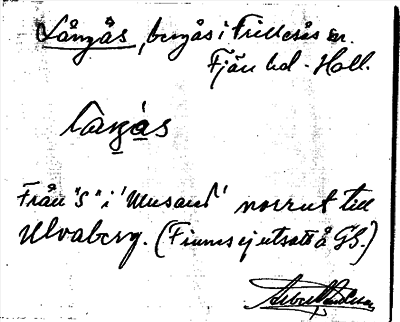 Långås, bergås i Frillesås sn.
Fjäre hd - Hall.
Långås
Från "S" i 'Musand' norrut till
Ulvaberg. (Finnes ej utsatt å GS.)